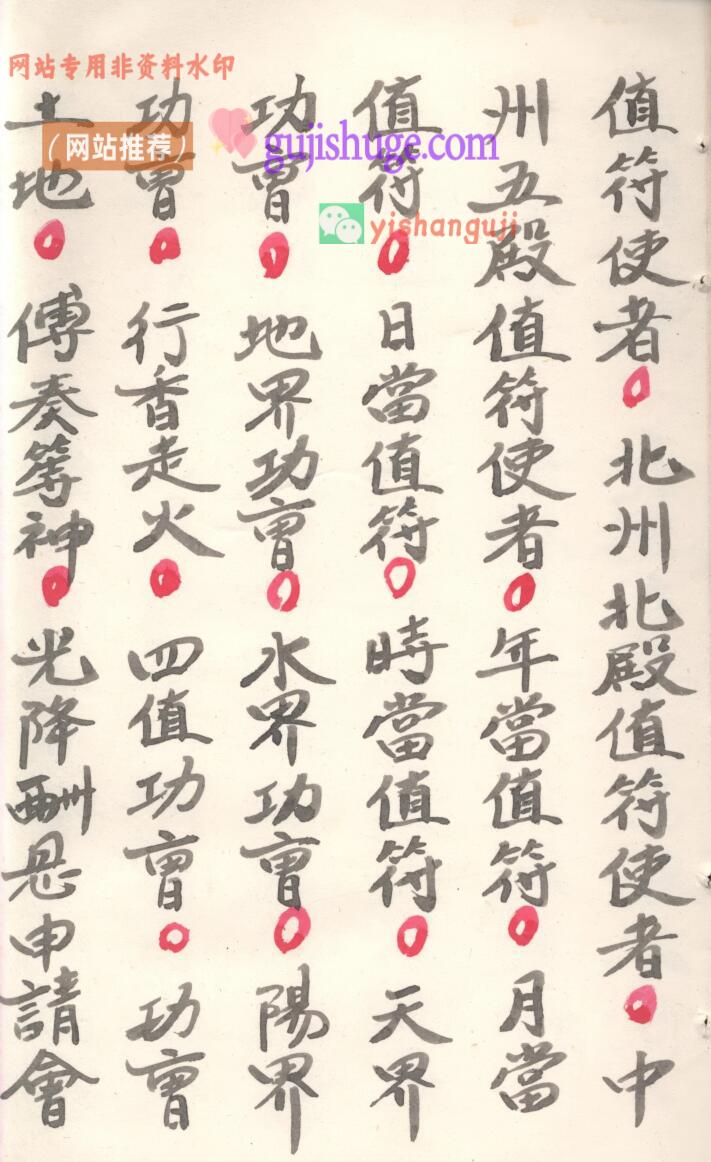 值符使者○北州北殿值符使者○中
州五殿值符使者○年當值符○月當
值符○日當值符○時當值符○天界
功曺○地界功曺○水界功曺○陽界
功曺○行香走火○四值功曺○功曺
土地○傅奏等神○光降酬恩申請會
网站专用非资料水印
（网站推荐）
gujishuge.com
yishanguji